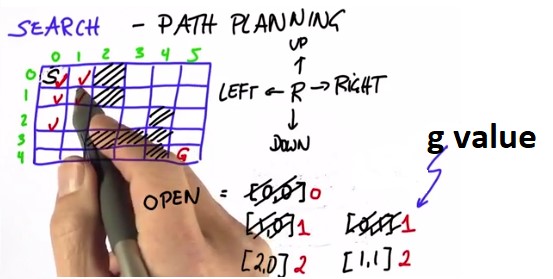 SEARCH - PATH PLANNING
0 1 2 3 4 5
UP
0 S
1
LEFT R RIGHT
2
DOWN
3
4 G
g value
OPEN = [0,0] 0
[1,0] 1 [0,1] 1
[2,0] 2 [1,1] 2